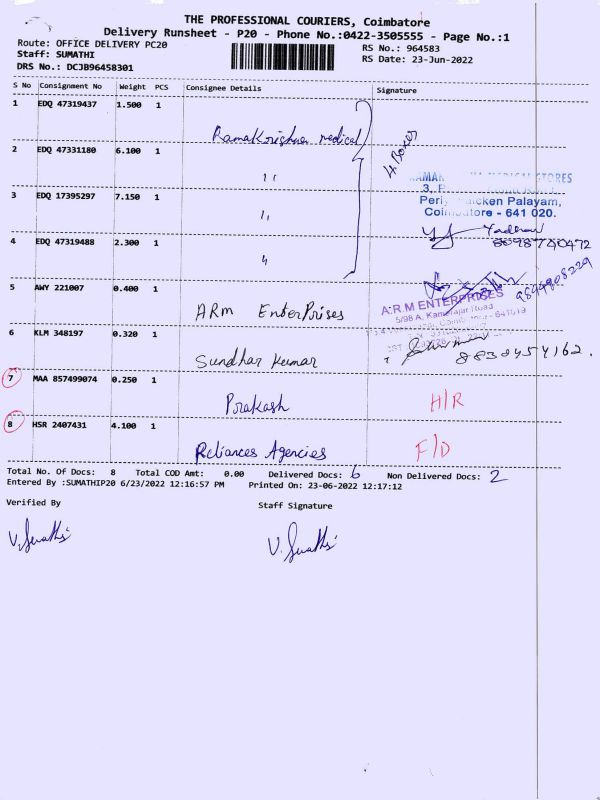 THE PROFESSIONAL COURIERS, Coimbatore
Delivery Runsheet - P20 - Phone No.:0422-3505555 - Page No.:1
Route: OFFICE DELIVERY PC20
RS No.: 964583
Staff: SUMATHI
RS Date: 23-Jun-2022
DRS No.: DCJB96458301
S No Consignment No Weight PCS Consignee Details Signature
1 EDQ 47319437 1.500 1
Ramakrishna medical
4 Boxes
2 EDQ 47331180 6.100 1
"
MEDICAL STORES
3 EDQ 17395297 7.150 1
"
Palayam,
Coimbatore - 641 020.
4 EDQ 47319488 2.300 1
"
5 AWY 221007 0.400 1
ARM EnterPrises
9894908229
A.R.M ENTERPRISES
5/98 A, Kamarajar Road
6 KLM 348197 0.320 1
Sundhar Kumar
8838454162.
7 MAA 857499074 0.250 1
Prakash H/R
8 HSR 2407431 4.100 1
Reliances Agencies F/D
Total No. Of Docs: 8 Total COD Amt: 0.00 Delivered Docs: 6 Non Delivered Docs: 2
Entered By :SUMATHIP20 6/23/2022 12:16:57 PM Printed On: 23-06-2022 12:17:12
Verified By Staff Signature
V. Sumathi V. Sumathi